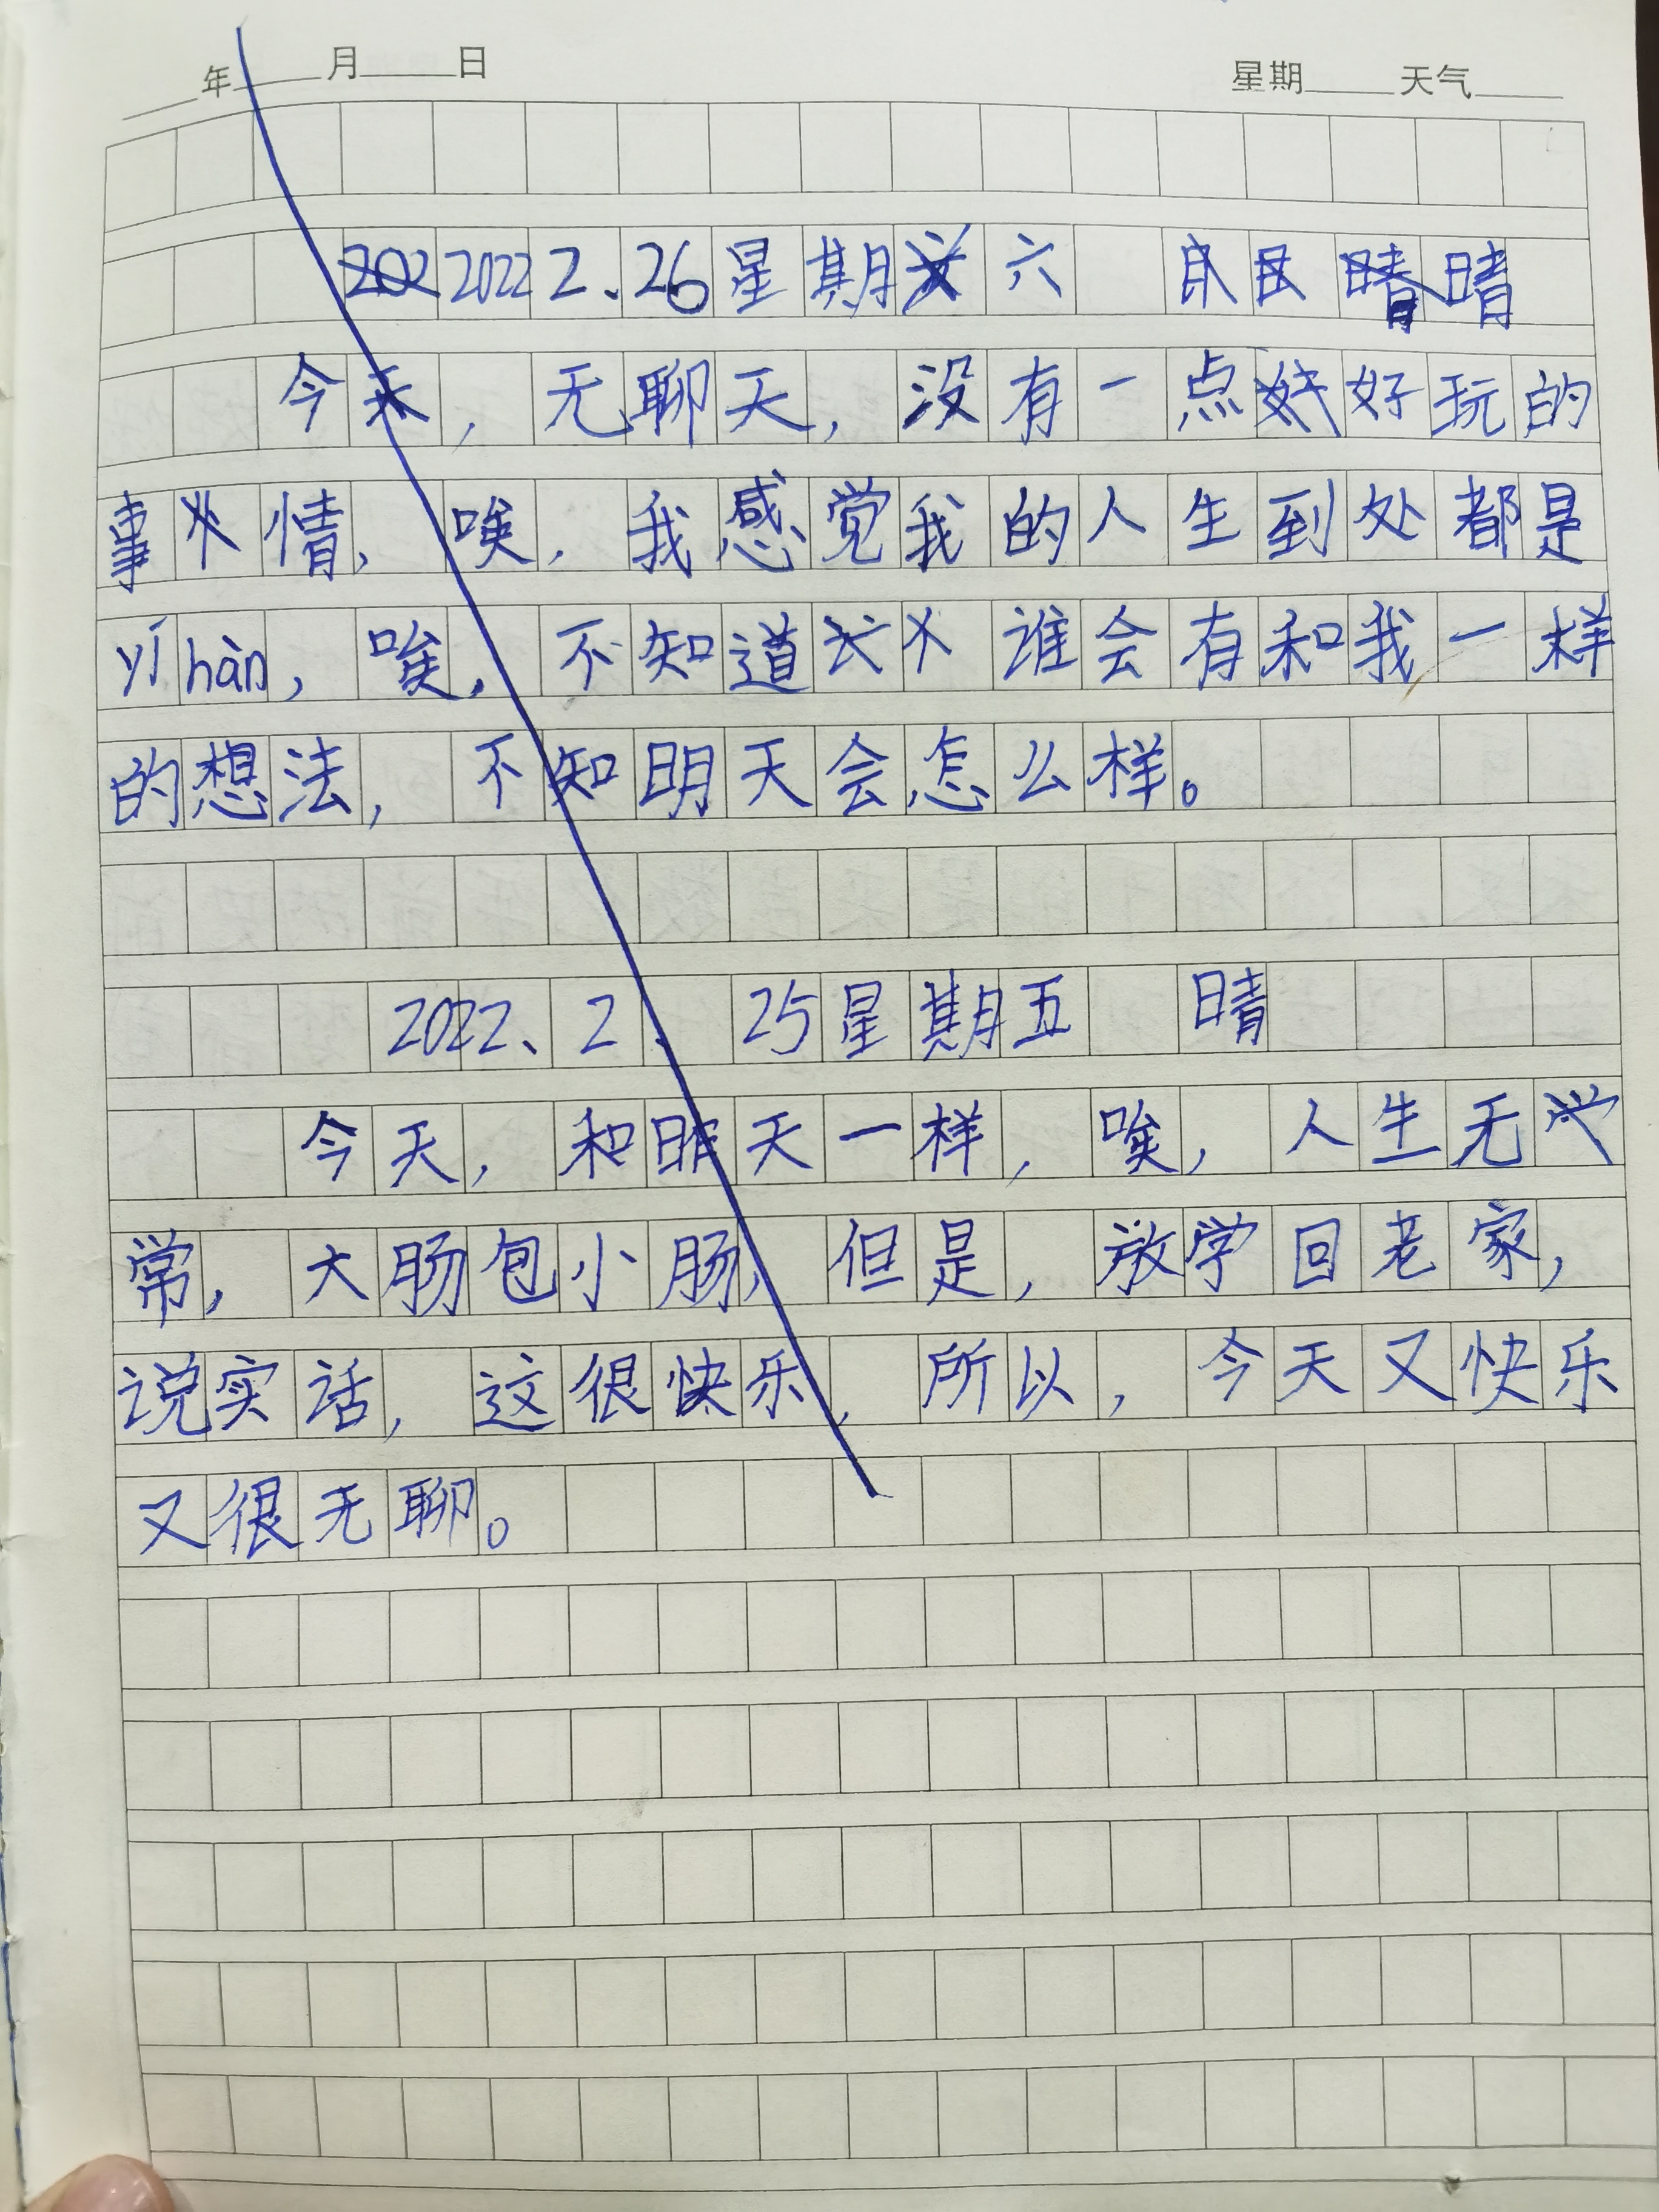 年 月 日 星期 天气
2022 2.26星期六 晴
今天，无聊天，没有一点好玩的
事情，唉，我感觉我的人生到处都是
yíhàn，唉，不知道谁会有和我一样
的想法，不知明天会怎么样。
2022、2、25星期五 晴
今天，和昨天一样，唉，人生无
常，大肠包小肠，但是，放学回老家，
说实话，这很快乐，所以，今天又快乐
又很无聊。